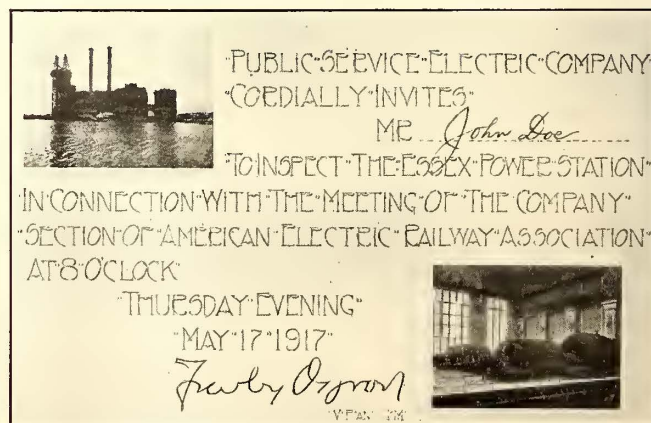 PUBLIC SERVICE ELECTRIC COMPANY
CORDIALLY INVITES
MR John Doe
TO INSPECT THE ESSEX POWER STATION
IN CONNECTION WITH THE MEETING OF THE COMPANY
SECTION OF AMERICAN ELECTRIC RAILWAY ASSOCIATION
AT 8 O'CLOCK
THURSDAY EVENING
MAY 17 1917